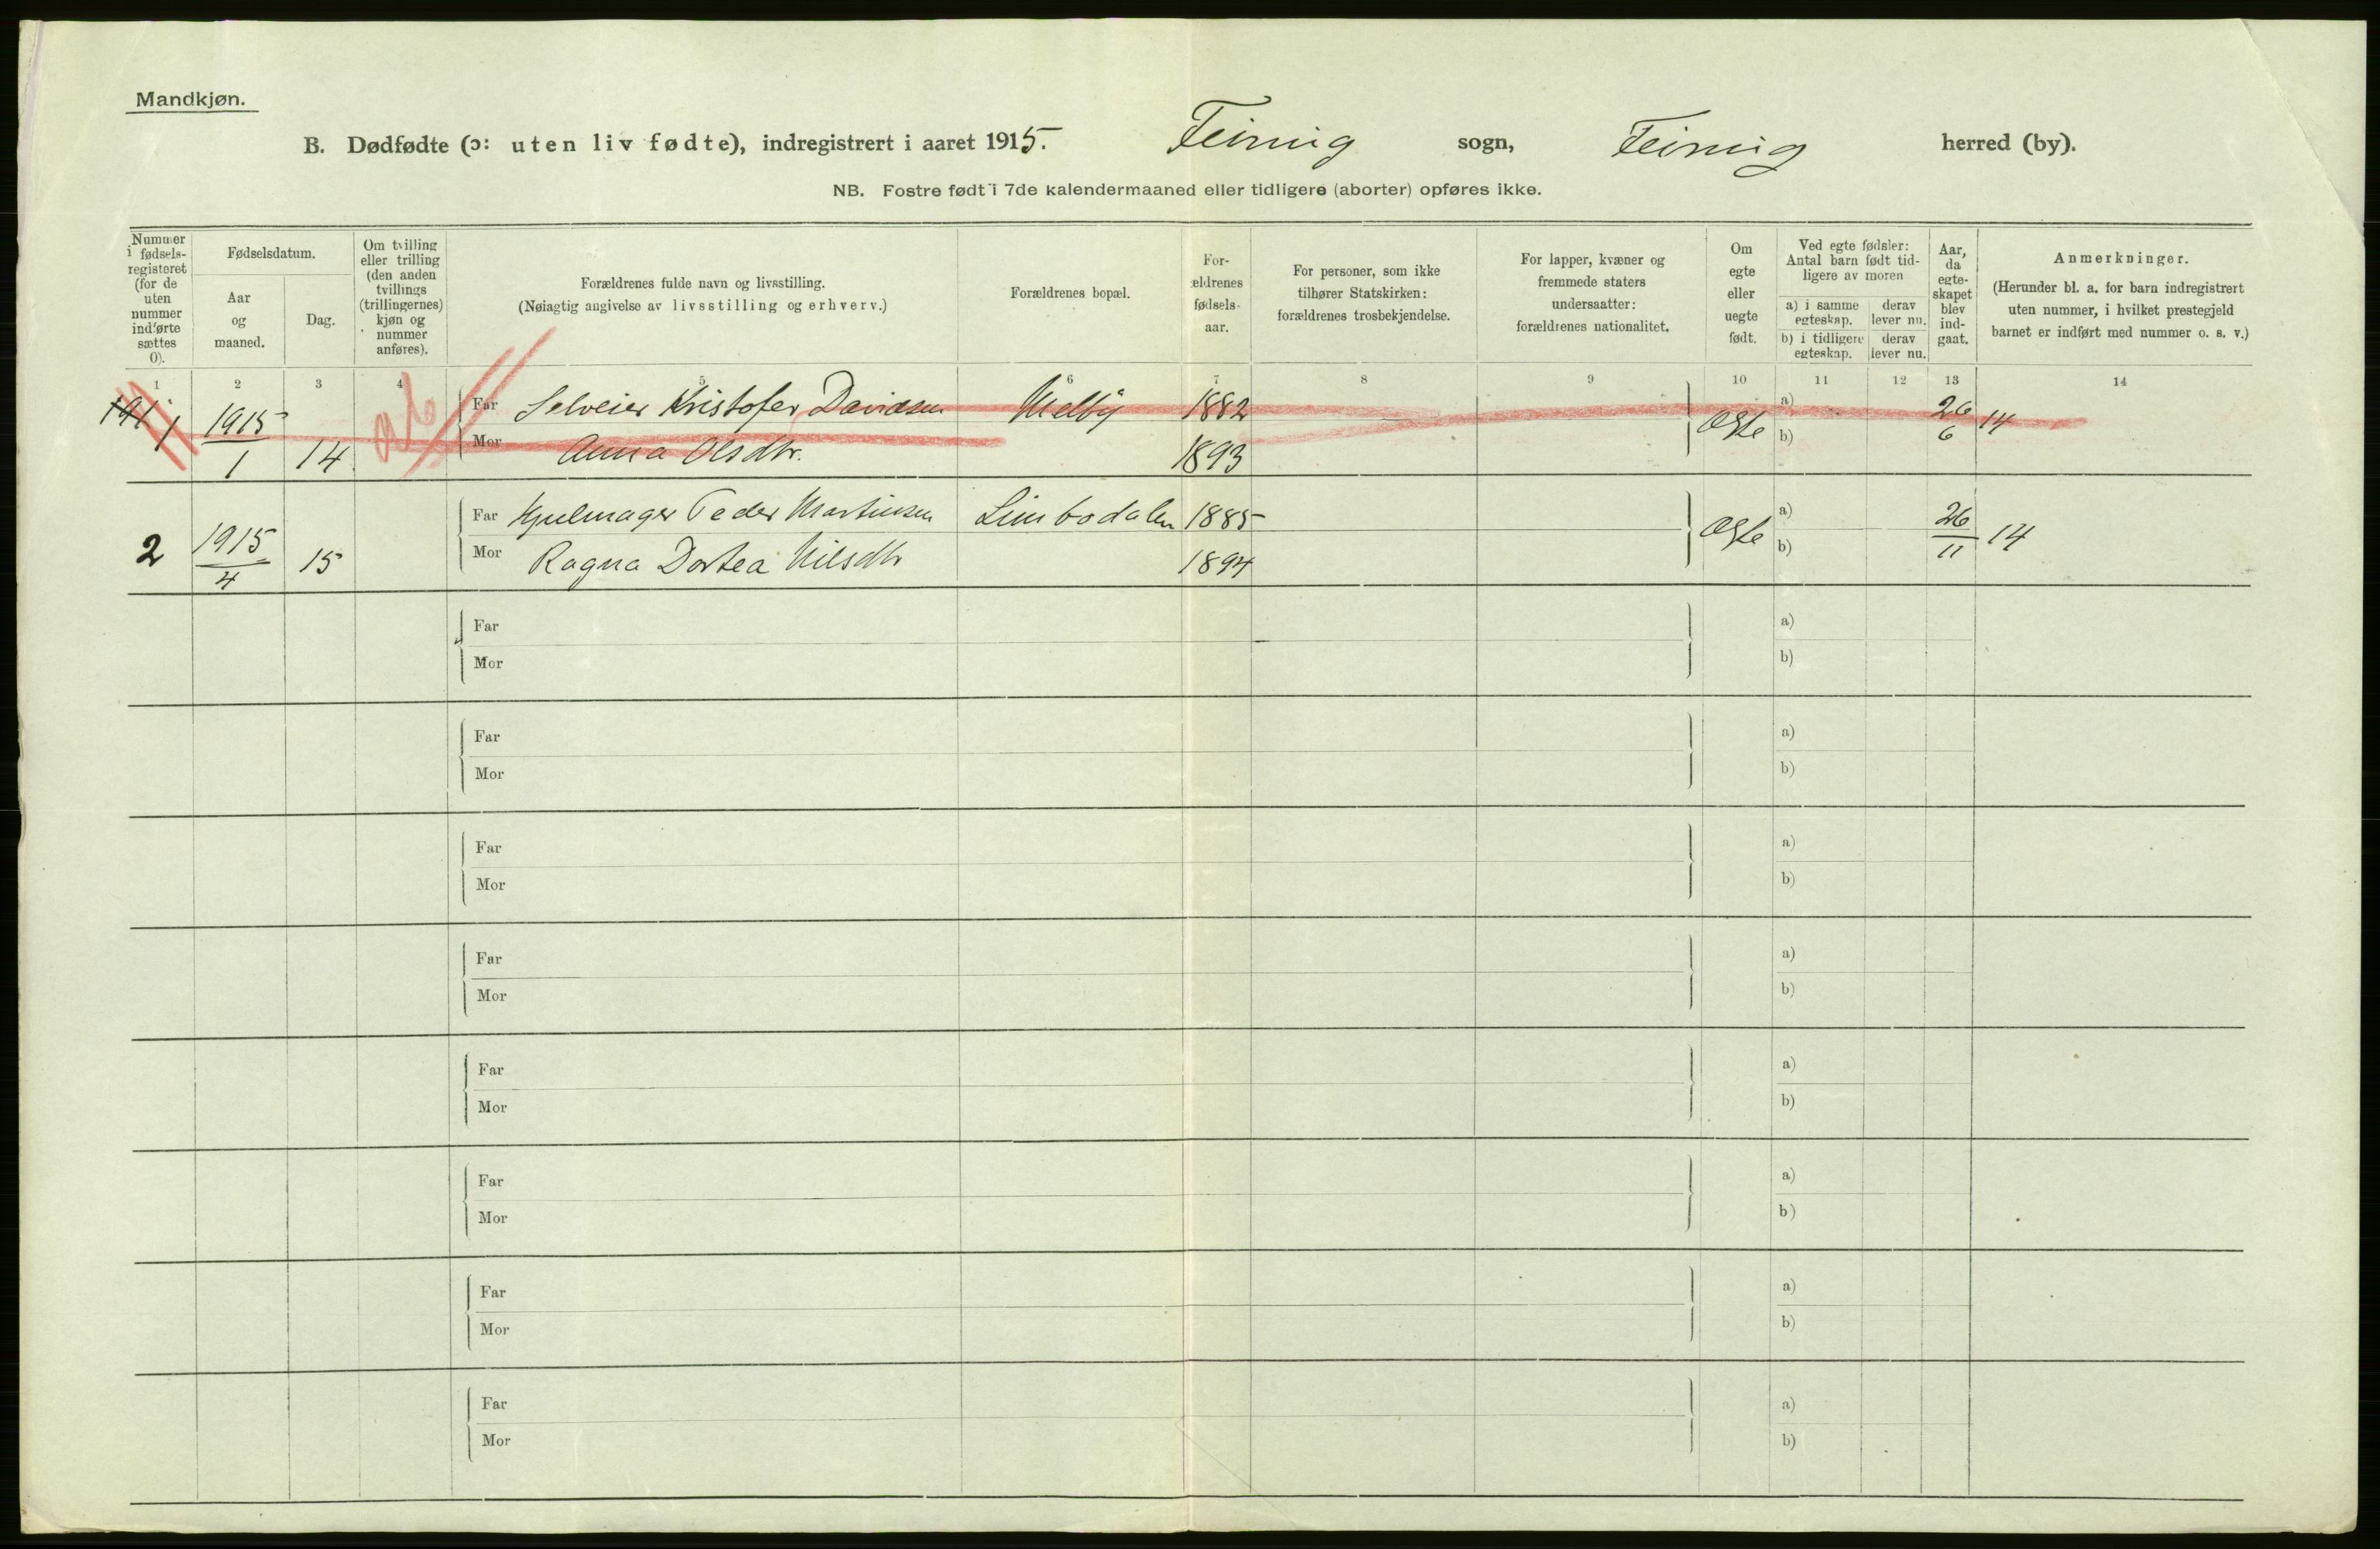 Mandkjøn.
B. Dødfødte (ɔ: uten liv fødte), indregistrert i aaret 1915. Feiring sogn, Feiring herred (by).
NB. Fostre født i 7de kalendermaaned eller tidligere (aborter) opføres ikke.
Nummer i fødsels-registeret (for de uten nummer indførte sættes 0).
Fødselsdatum.
Aar og maaned.
Dag.
Om tvilling eller trilling (den anden tvillings (trillingernes) kjøn og nummer anføres).
Forældrenes fulde navn og livsstilling.
(Nøiagtig angivelse av livsstilling og erhverv.)
Forældrenes bopæl.
For-ældrenes fødsels-aar.
For personer, som ikke tilhører Statskirken: forældrenes trosbekjendelse.
For lapper, kvæner og fremmede staters undersaatter: forældrenes nationalitet.
Om egte eller uegte født.
Ved egte fødsler: Antal barn født tid-ligere av moren
a) i samme egteskap.
derav lever nu.
b) i tidligere egteskap.
derav lever nu.
Aar, da egte-skapet blev ind-gaat.
Anmerkninger.
(Herunder bl. a. for barn indregistrert uten nummer, i hvilket prestegjeld barnet er indført med nummer o. s. v.)
1 2 3 4 5 6 7 8 9 10 11 12 13 14
1 1915/1 14 Far Selveier Kristofer Davidsen Melby 1882 Ægte a) 26/6 14
Mor Anna Olsdtr. 1893 b)
2 1915/4 15 Far Hjulmager Peder Martinsen Limbodalen 1885 Ægte a) 26/11 14
Mor Ragna Dortea Nilsdtr 1894 b)
Far a)
Mor b)
Far a)
Mor b)
Far a)
Mor b)
Far a)
Mor b)
Far a)
Mor b)
Far a)
Mor b)
Far a)
Mor b)
Far a)
Mor b)